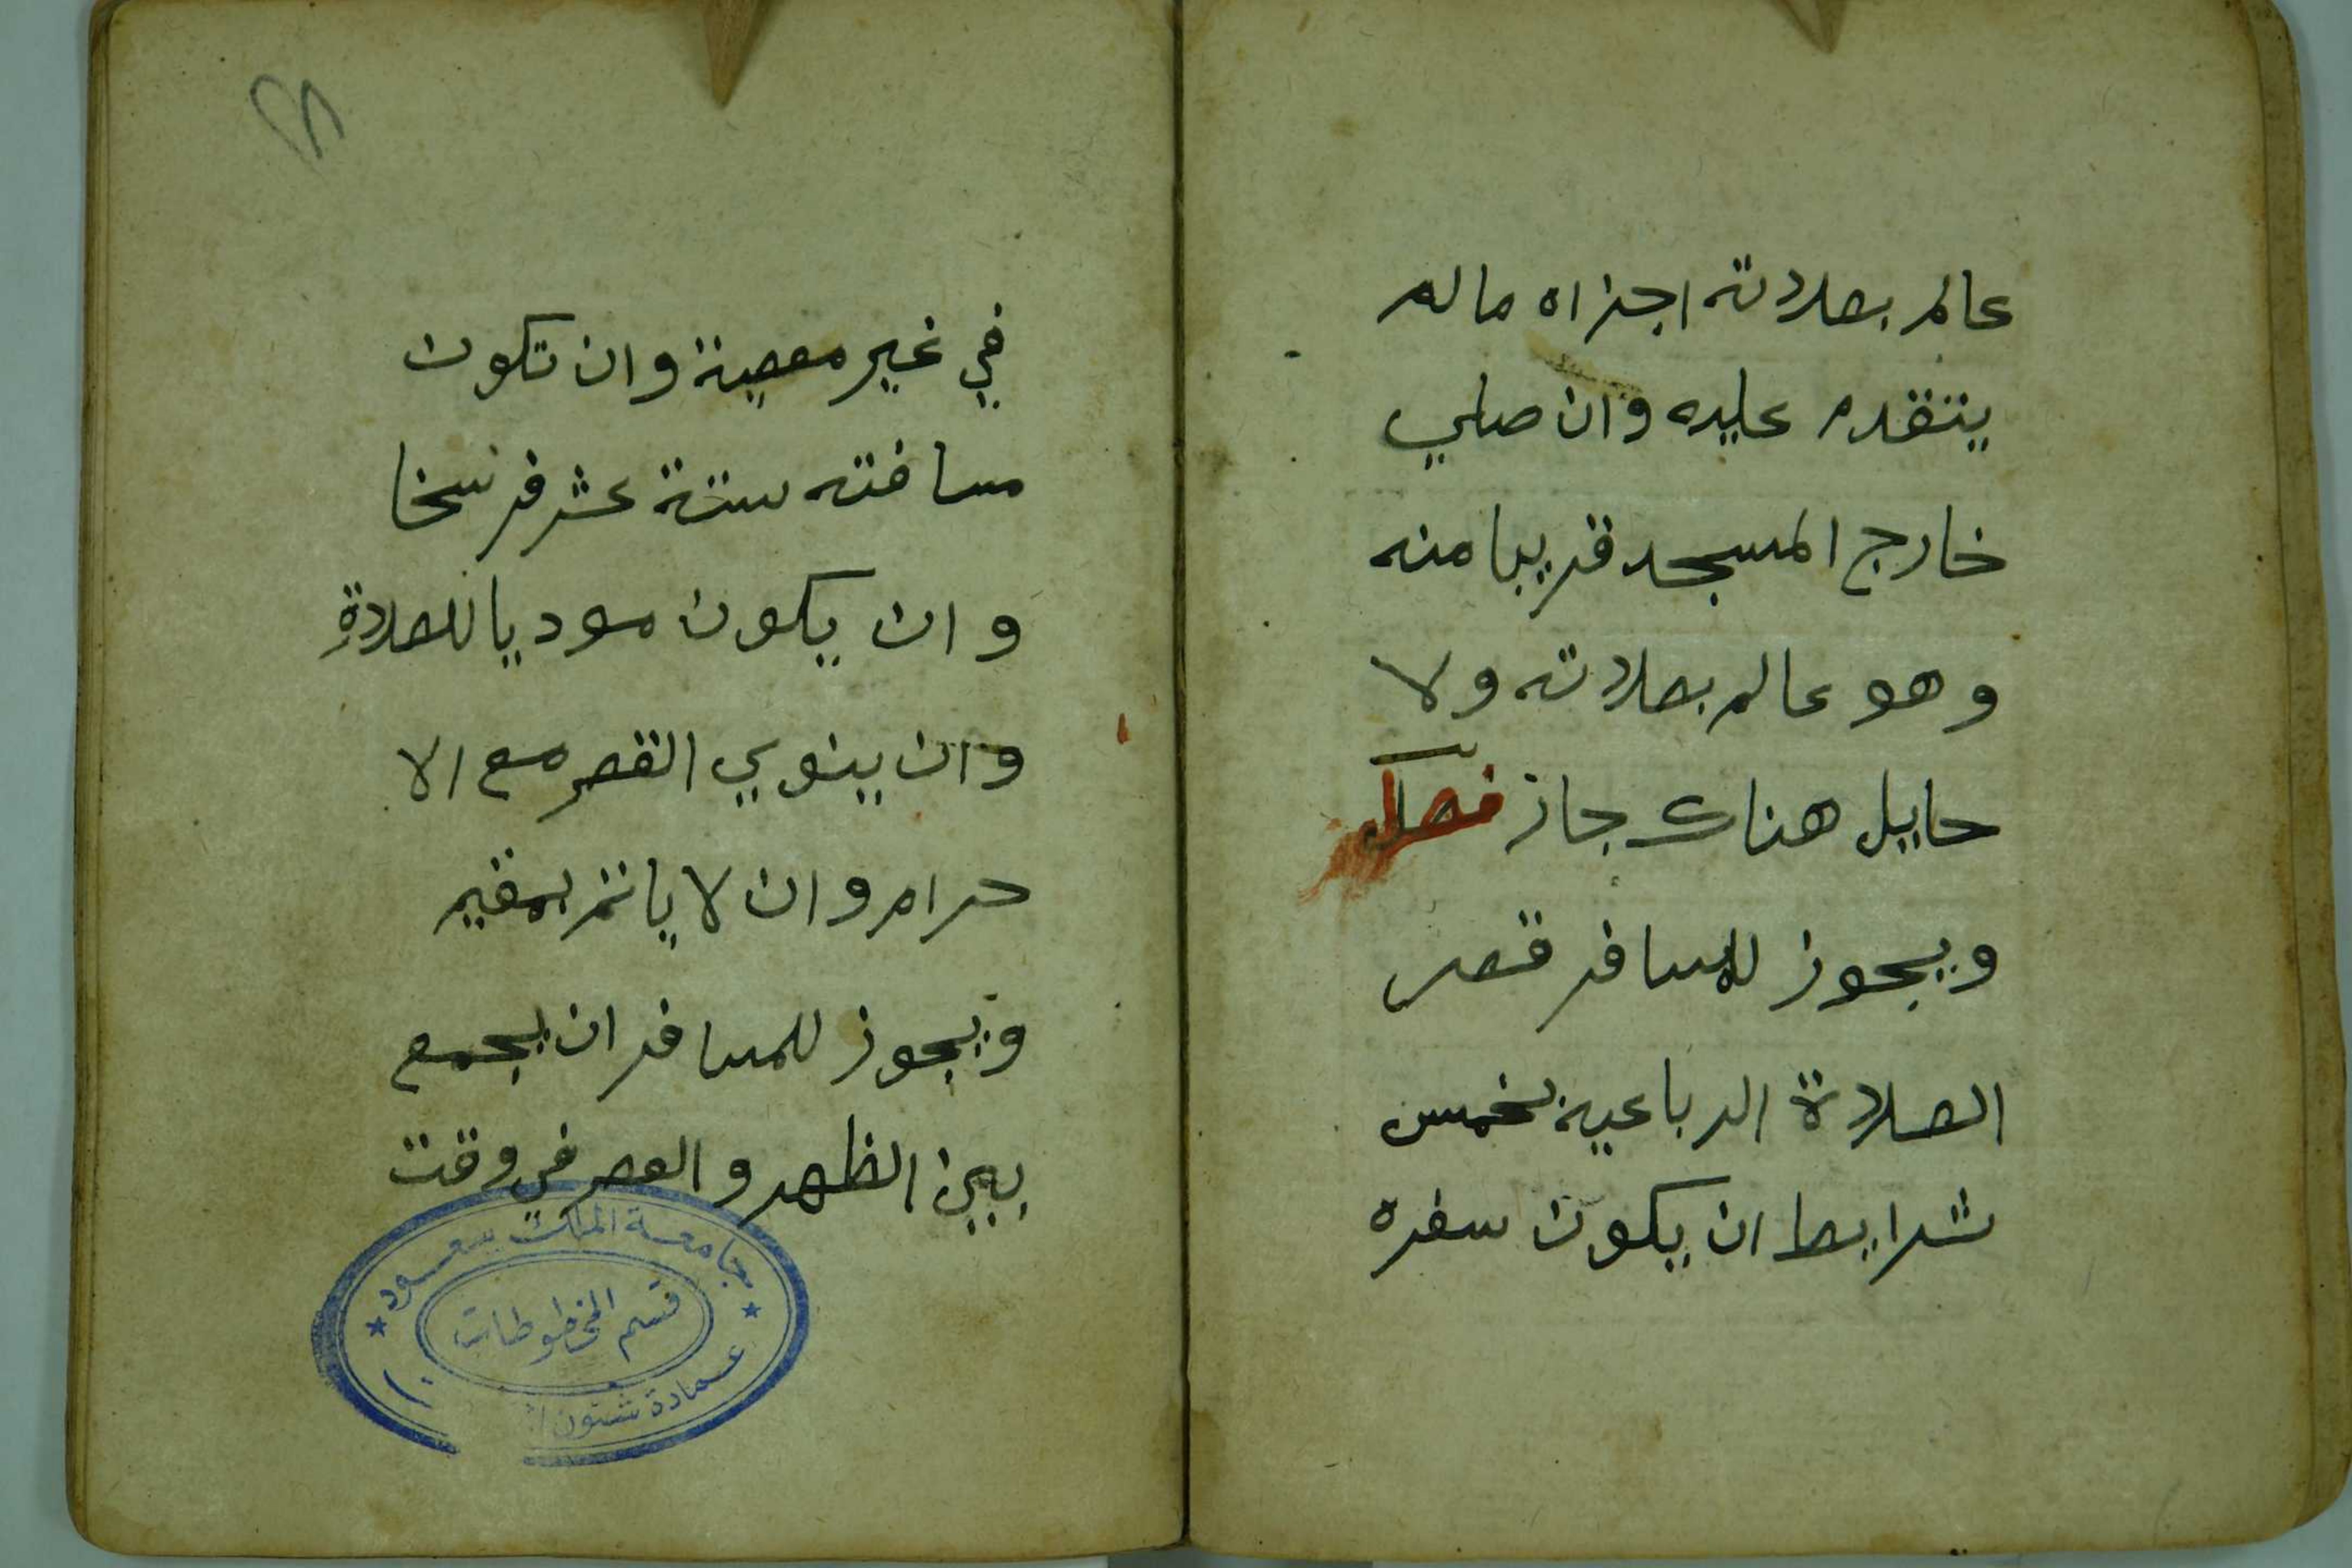 عالم بصلاته اجزاه ماله
يتقدم عليه وان صلي
خارج المسجد قريبا منه
وهو عالم بصلاته ولا
حايل هناك جاز فصل
ويجوز للمسافر قصر
الصلاة الرباعية بخمس
شرايط ان يكون سفره
في غير معصية وان تكون
مسافته ستة عشر فرسخا
وان يكون موديا للصلاة
وان ينوي القصر مع الا
حرام وان لا ياتم بمقيم
ويجوز للمسافر ان يجمع
بين الظهر والعصر في وقت
جامعة الملك سعود
قسم المخطوطات
عمادة شئون